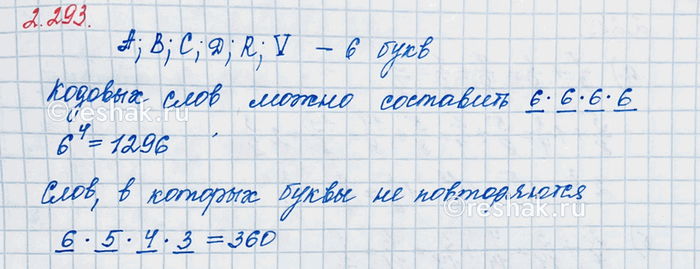 2.293.
A; B; C; D; R; V – 6 букв
Кодовых слов можно составить 6·6·6·6
6⁴ = 1296
Слов, в которых буквы не повторяются
6·5·4·3 = 360
©reshak.ru
©reshak.ru